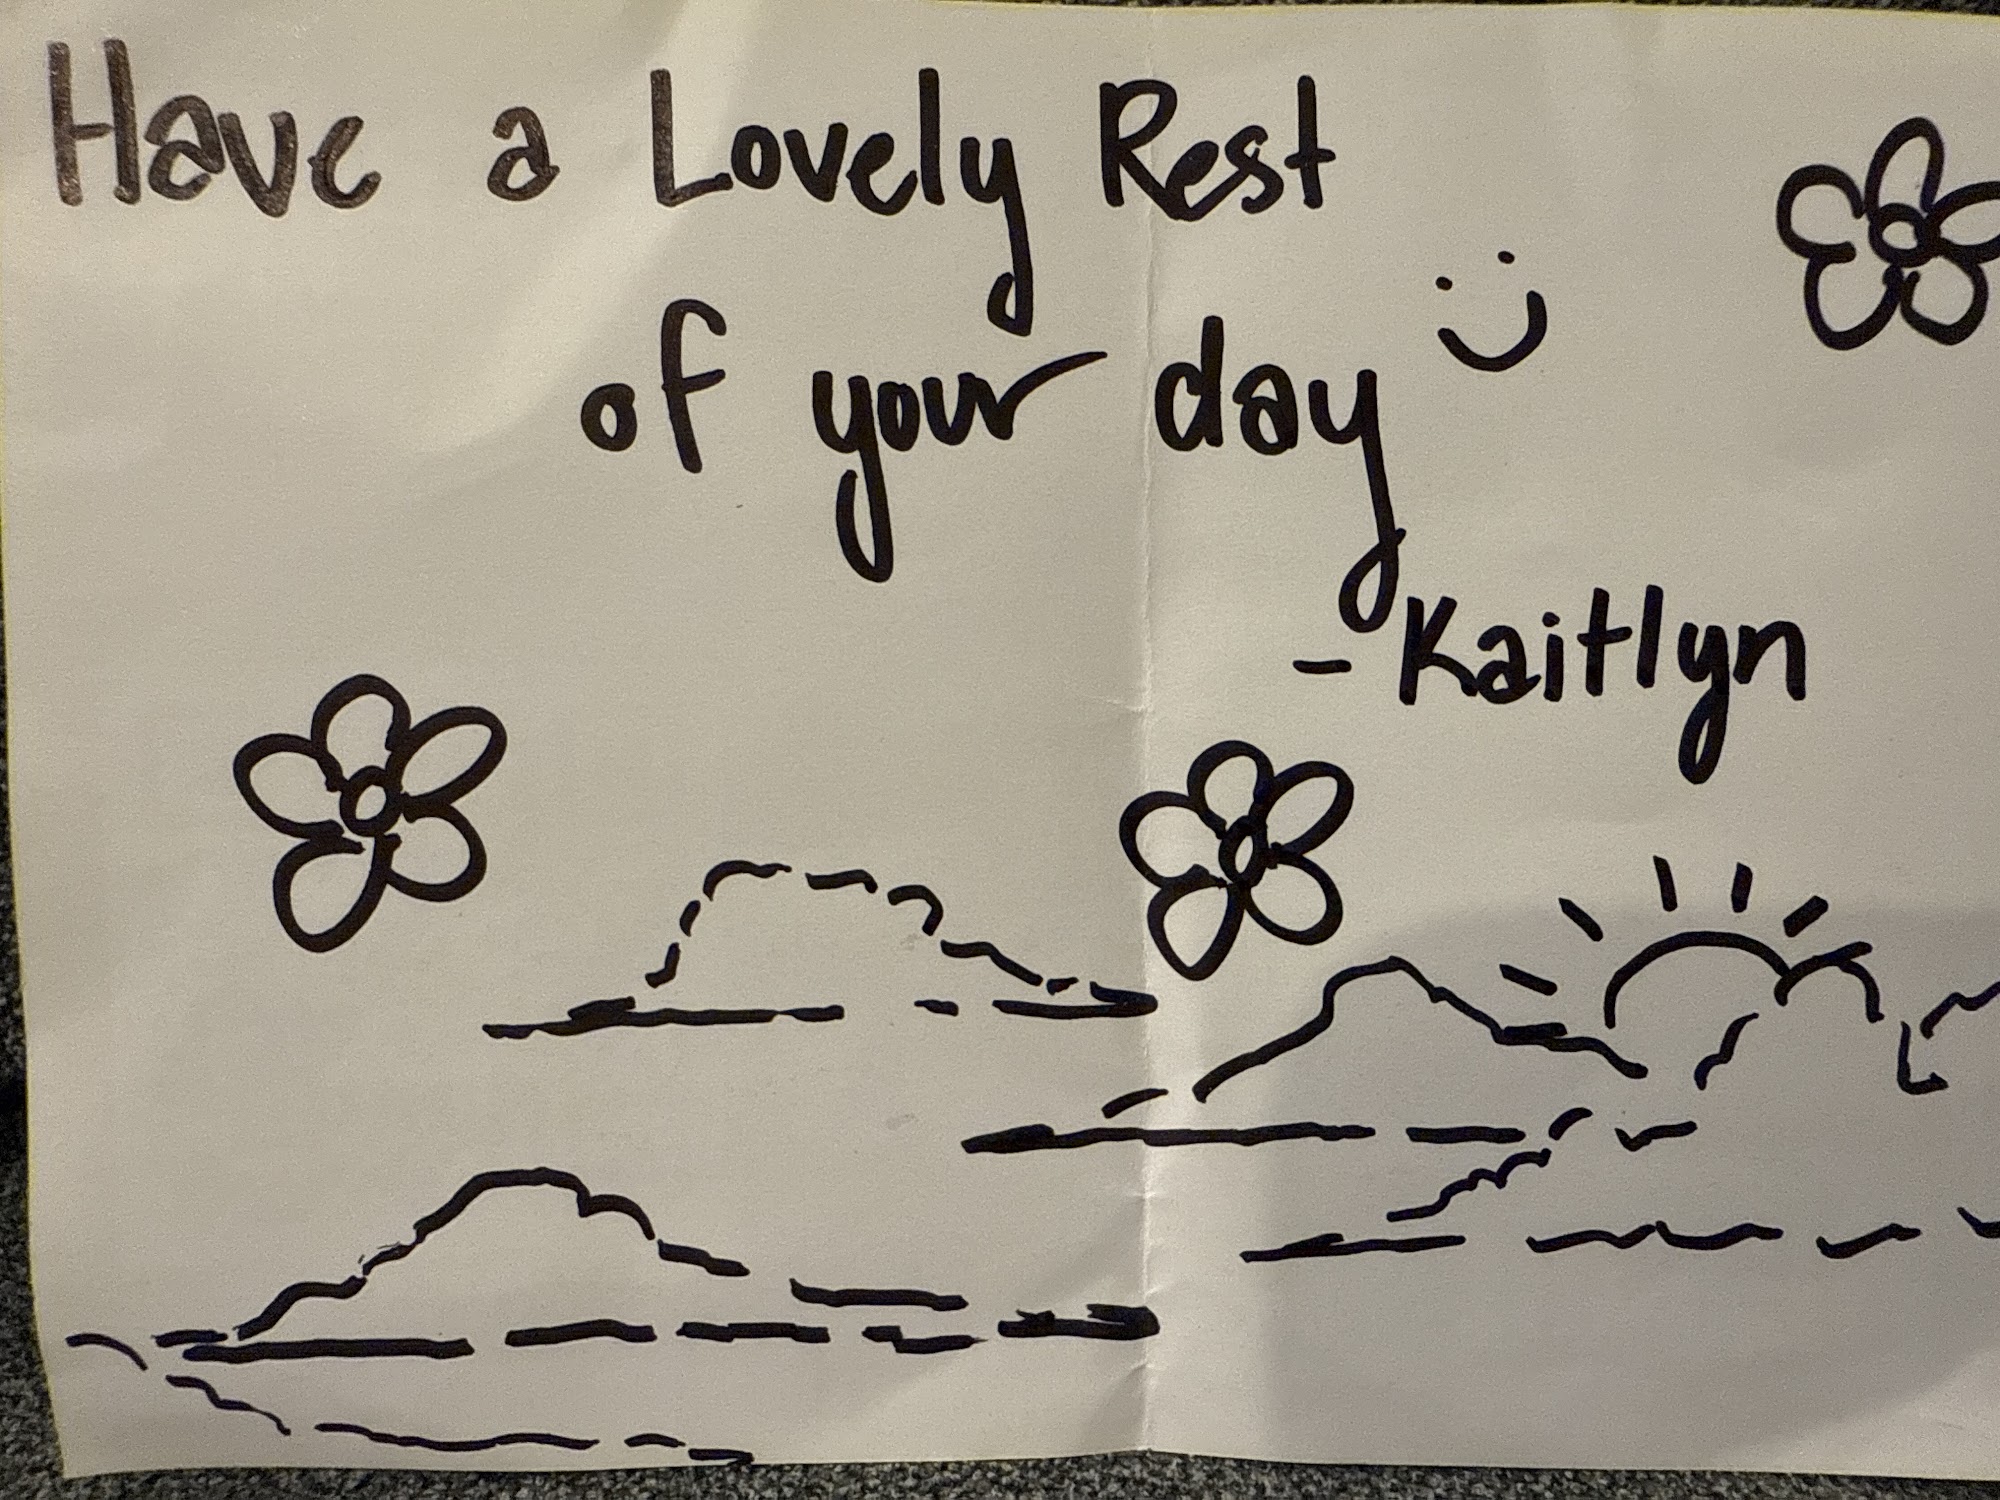 Have a Lovely Rest
of your day :)
- Kaitlyn